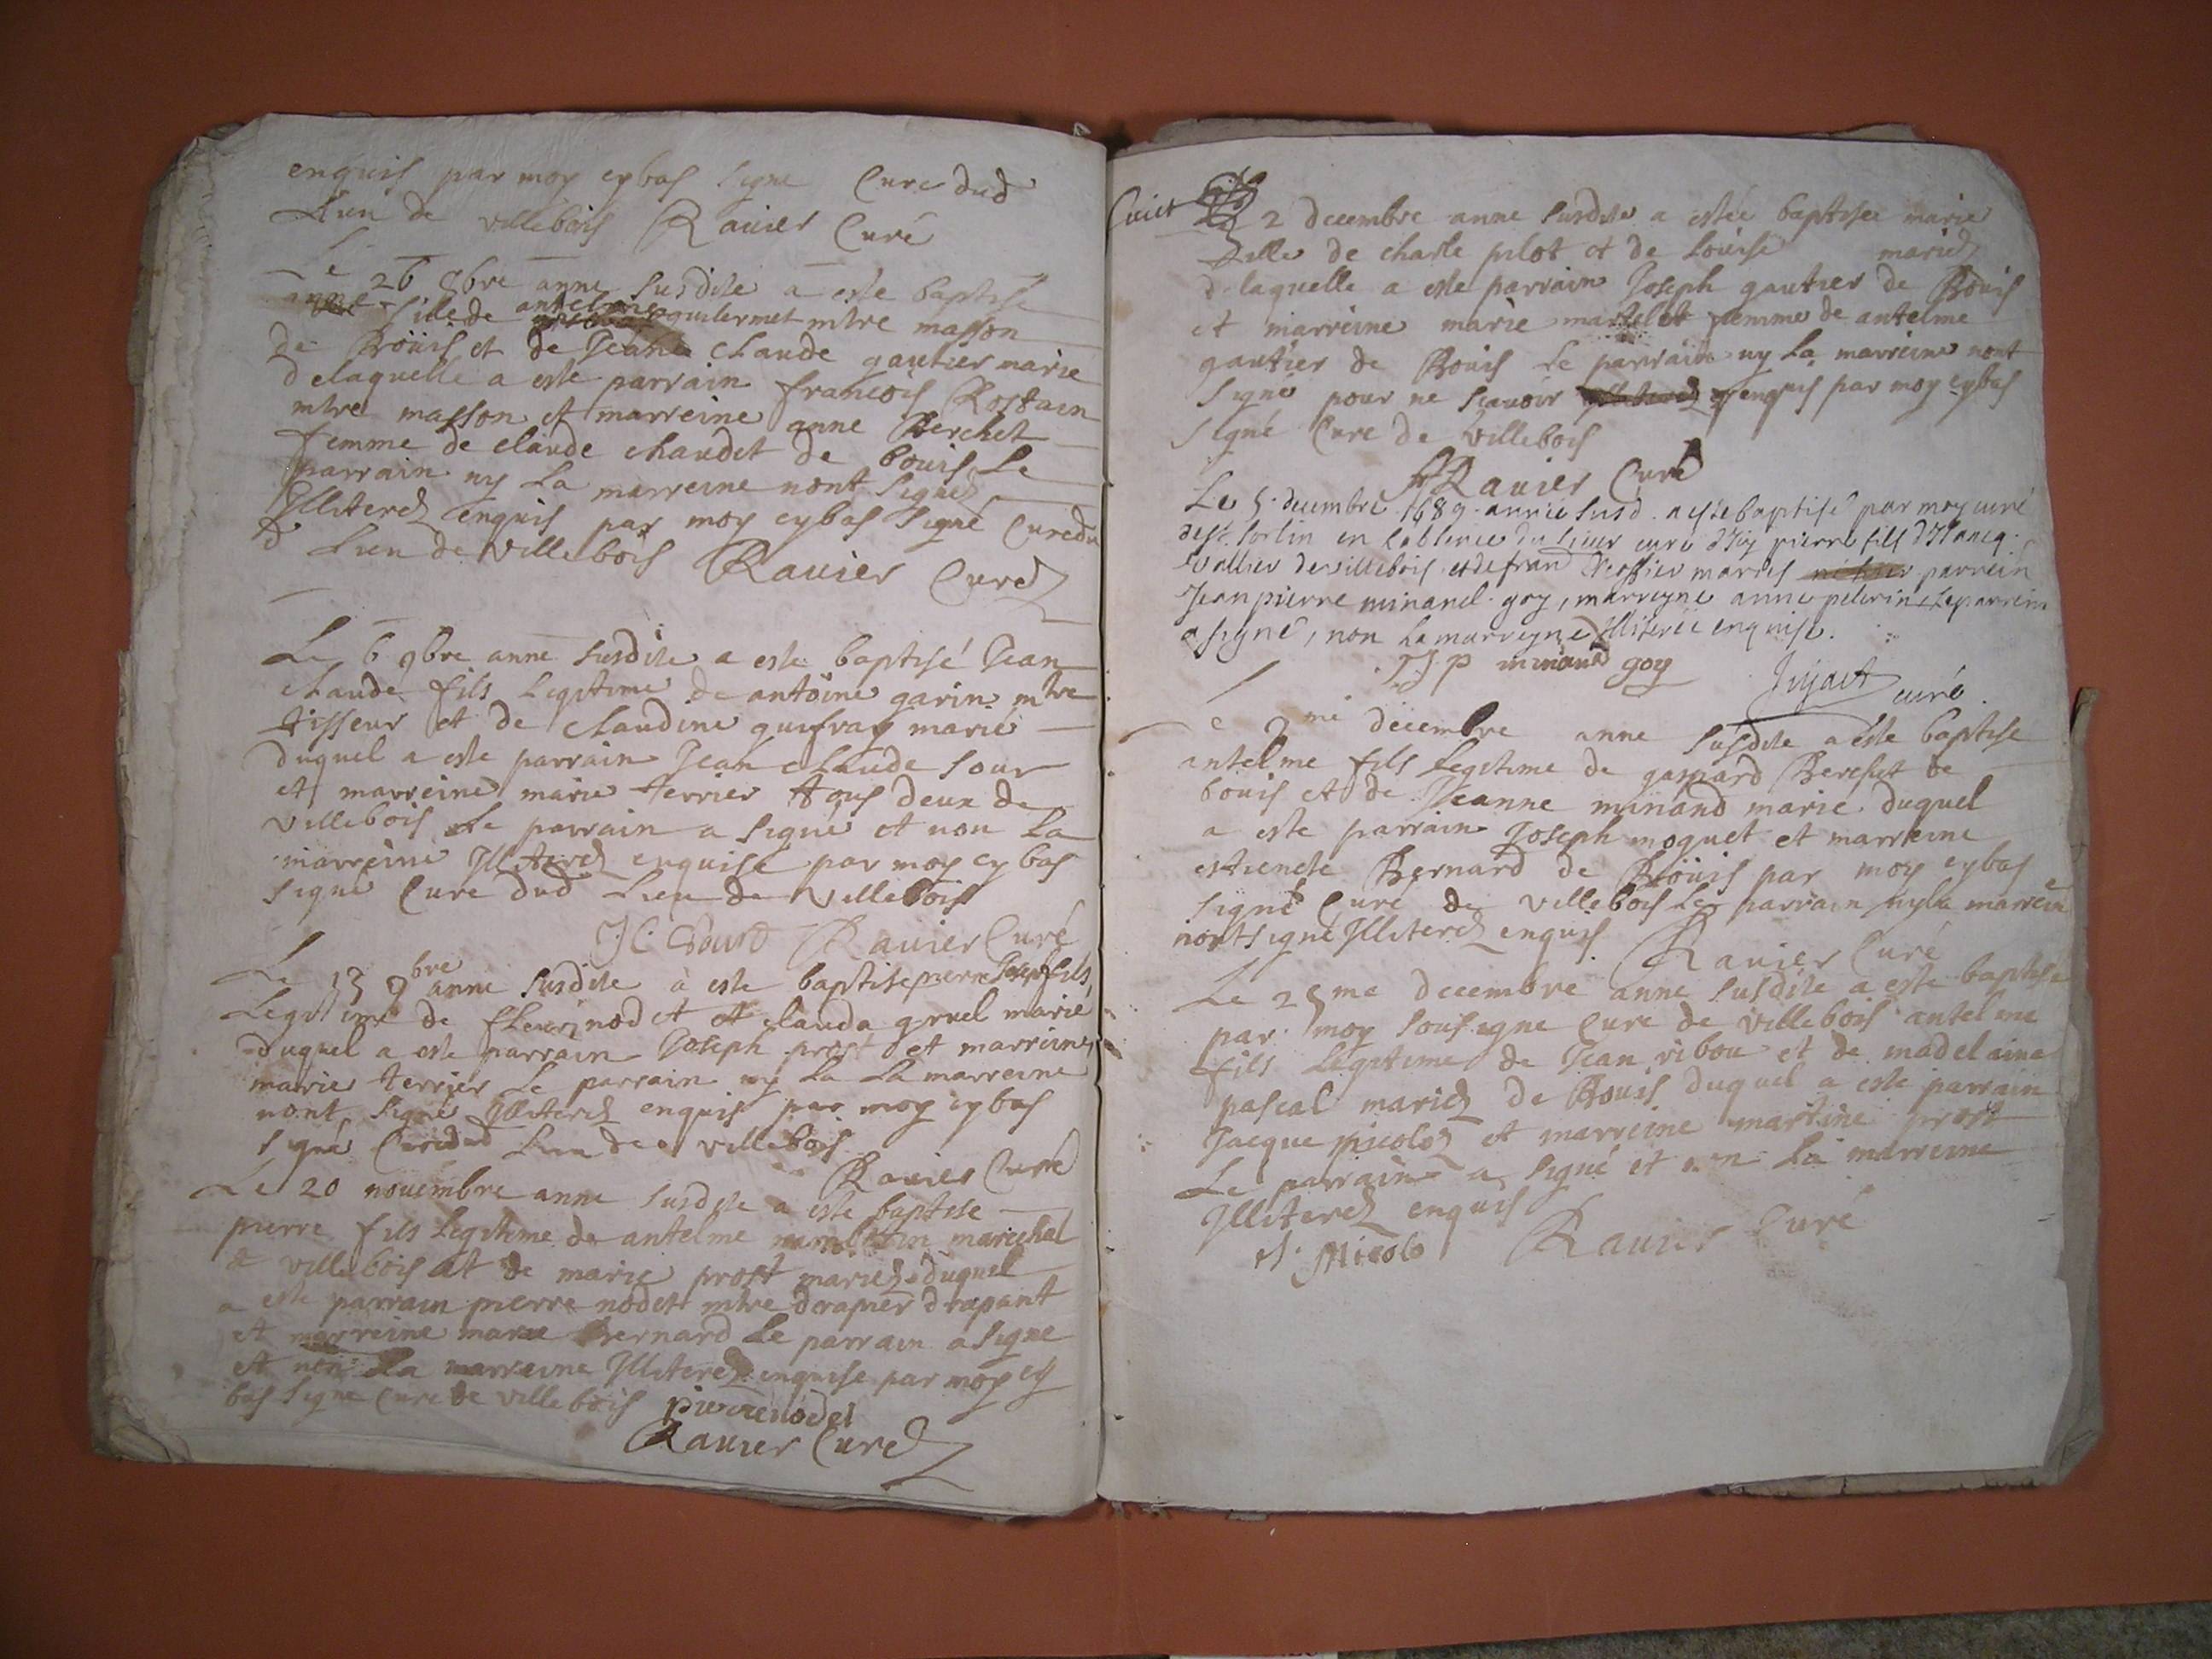 enquis par moy cybas signe Cure dud
Lieu de villebois Ravier Curé
Le 26 8bre anne susdite a este baptise
anne fille de antelme guilermet mtre masson
de Boüis et de Jeane claude gautier marie
delaquelle a este parrain francois Rostain
mtre masson et marreine anne Berchet
femme de claude chaudet de bouis Le
parrain ny La marreine nont signez
Illiterez enquis par moy cybas signé Curedu
d Lieu de villebois Ravier Curez
Le 6 9bre anne susdite a este baptisé Jean
claude fils Legitime de antoine garin mtre
tisseur et de claudine guifray marié
duquel a este parrain Jean claude sour
et marreine marie terrier tous deux de
villebois Le parrain a signé et non La
marreine Illiterez enquise par moy cy bas
signé Cure dud Lieu de villebois
JC Sourd Ravier Curé
Le 13 9bre anne susdite à este baptise pierre Joseph fils
Legitime de nodet et clauda gruel marié
duquel a este parrain Joseph prost et marreine
marie terrier Le parrain ny La La marreine
nont signé Illiterez enquis par moy cybas
signé Curedud Lieu de villebois
Ravier Curé
Le 20 novembre anne susdite a este baptise
pierre fils Legitime de antelme marechal
d villebois et de marie prost mariez duquel
a este parrain pierre nodet mtre drapier drapant
et marreine marie Bernard Le parrain a signe
et non La marreine Illiterez enquise par moy cy
bas signe Cure de villebois pierre nodet
Ravier Curez
2 decembre anne susdite a estée baptisee marie
fille de charle pilot et de Loüise mariez
d laquelle a este parrain Joseph gautier de Boüis
et marreine marie martelet femme de antelme
gautier de Bouis Le parrain ny La marreine nont
signé pour ne scavoir enquis par moy cybas
signé Cure de villebois
Ravier Curé
Le 5 decembre 1689 annee susd a este baptisé par moy curé
de st sorlin en l'absence du sieur curé pierre fils
vallier de villebois et de mariés parrein
Jean pierre minand goy, marreyne anne pelerin Leparrein
a signé, non la marreyne Illiterée enquise.
J p minand goy curé
Le 9me decembre anne susdite a este baptise
antelme fils Legitime de gaspard Berchet de
bouis et de Jeanne minand marie duquel
a este parrain Joseph moguet et marreine
Bernard de Boüis par moy cybas
signé Curé de villebois Le parrain nyla marreine
nont signé Illiterez enquis Ravier Curé
Le 25me decembre anne susdite a este baptisé
par moy sousigne Cure de villebois antelme
fils Legitime de Jean ribou et de madelaine
pascal mariez de Bouis duquel a este parrain
Jacque picolez et marreine martine prost
Le parrain a signé et non La marreine
Illiterez enquis
Ravier Curé